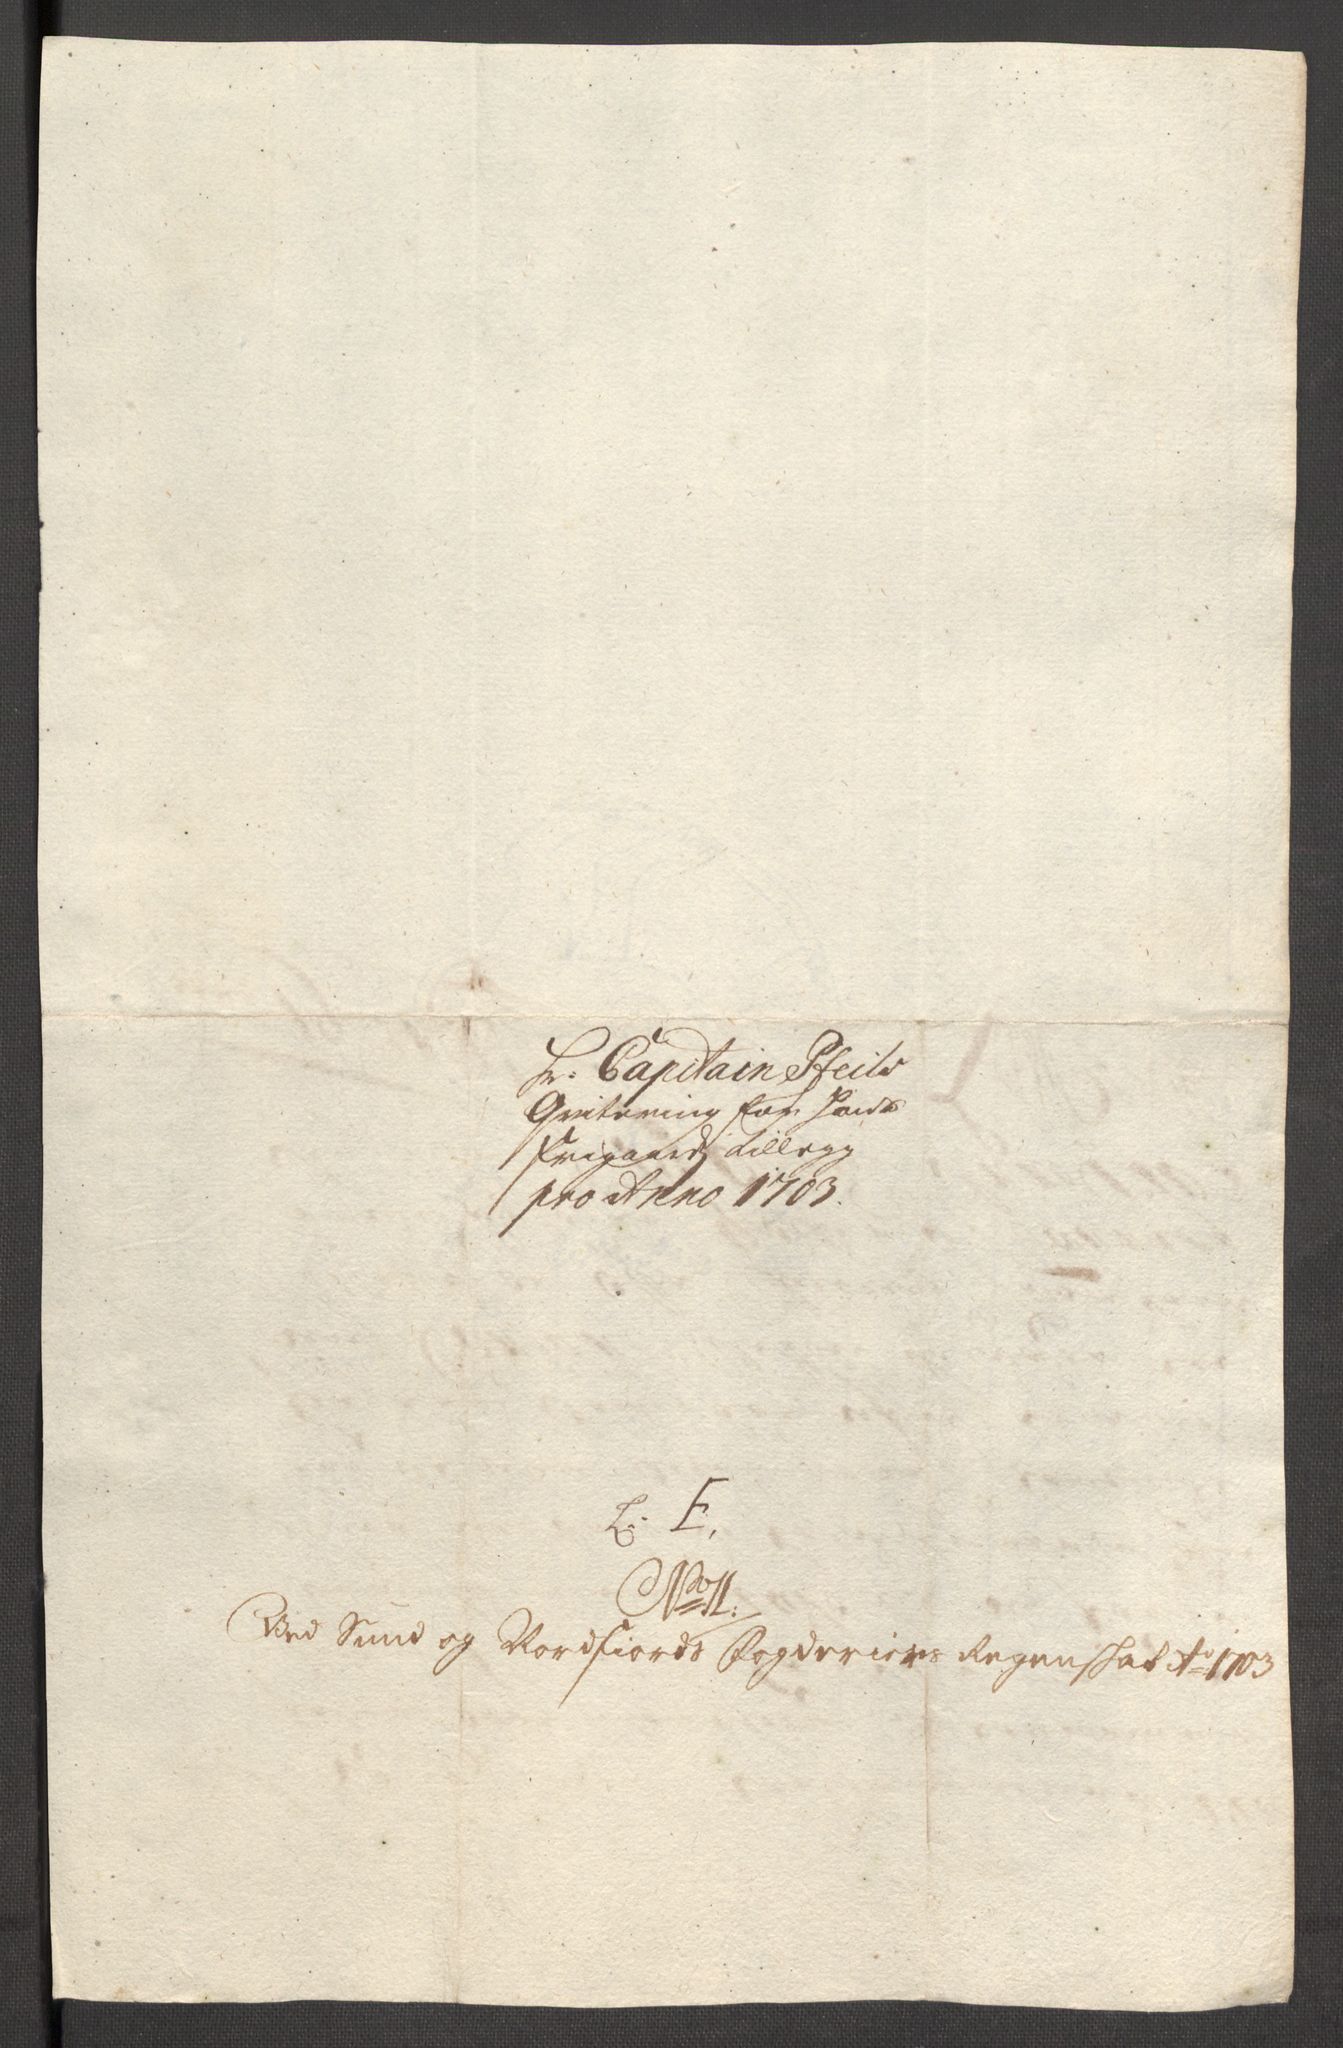 Hr. Capitain Pfeils
Qvitering for hans
Frigaards tillegg
pro Anno 1703.
L. E,
No 11:
Ved Sund og Nordfiords Fogderiers Regenskab Ao 1703